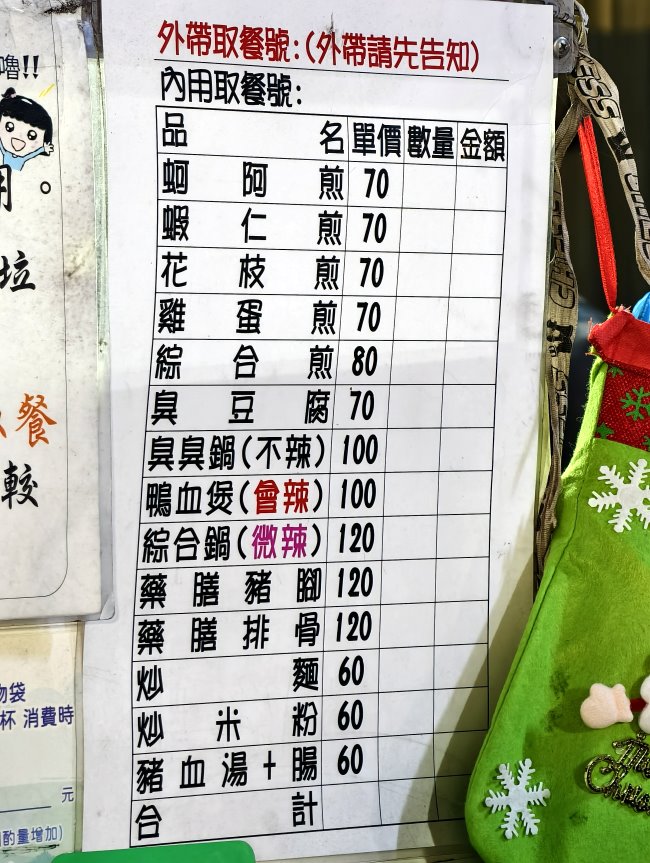 嚕!!
用。
垃
餐
較
物袋
杯 消費時
元
酌量增加)
外帶取餐號:(外帶請先告知)
內用取餐號:
品名 單價 數量 金額
蚵阿煎 70
蝦仁煎 70
花枝煎 70
雞蛋煎 70
綜合煎 80
臭豆腐 70
臭臭鍋(不辣) 100
鴨血煲(會辣) 100
綜合鍋(微辣) 120
藥膳豬腳 120
藥膳排骨 120
炒麵 60
炒米粉 60
豬血湯+腸 60
合計